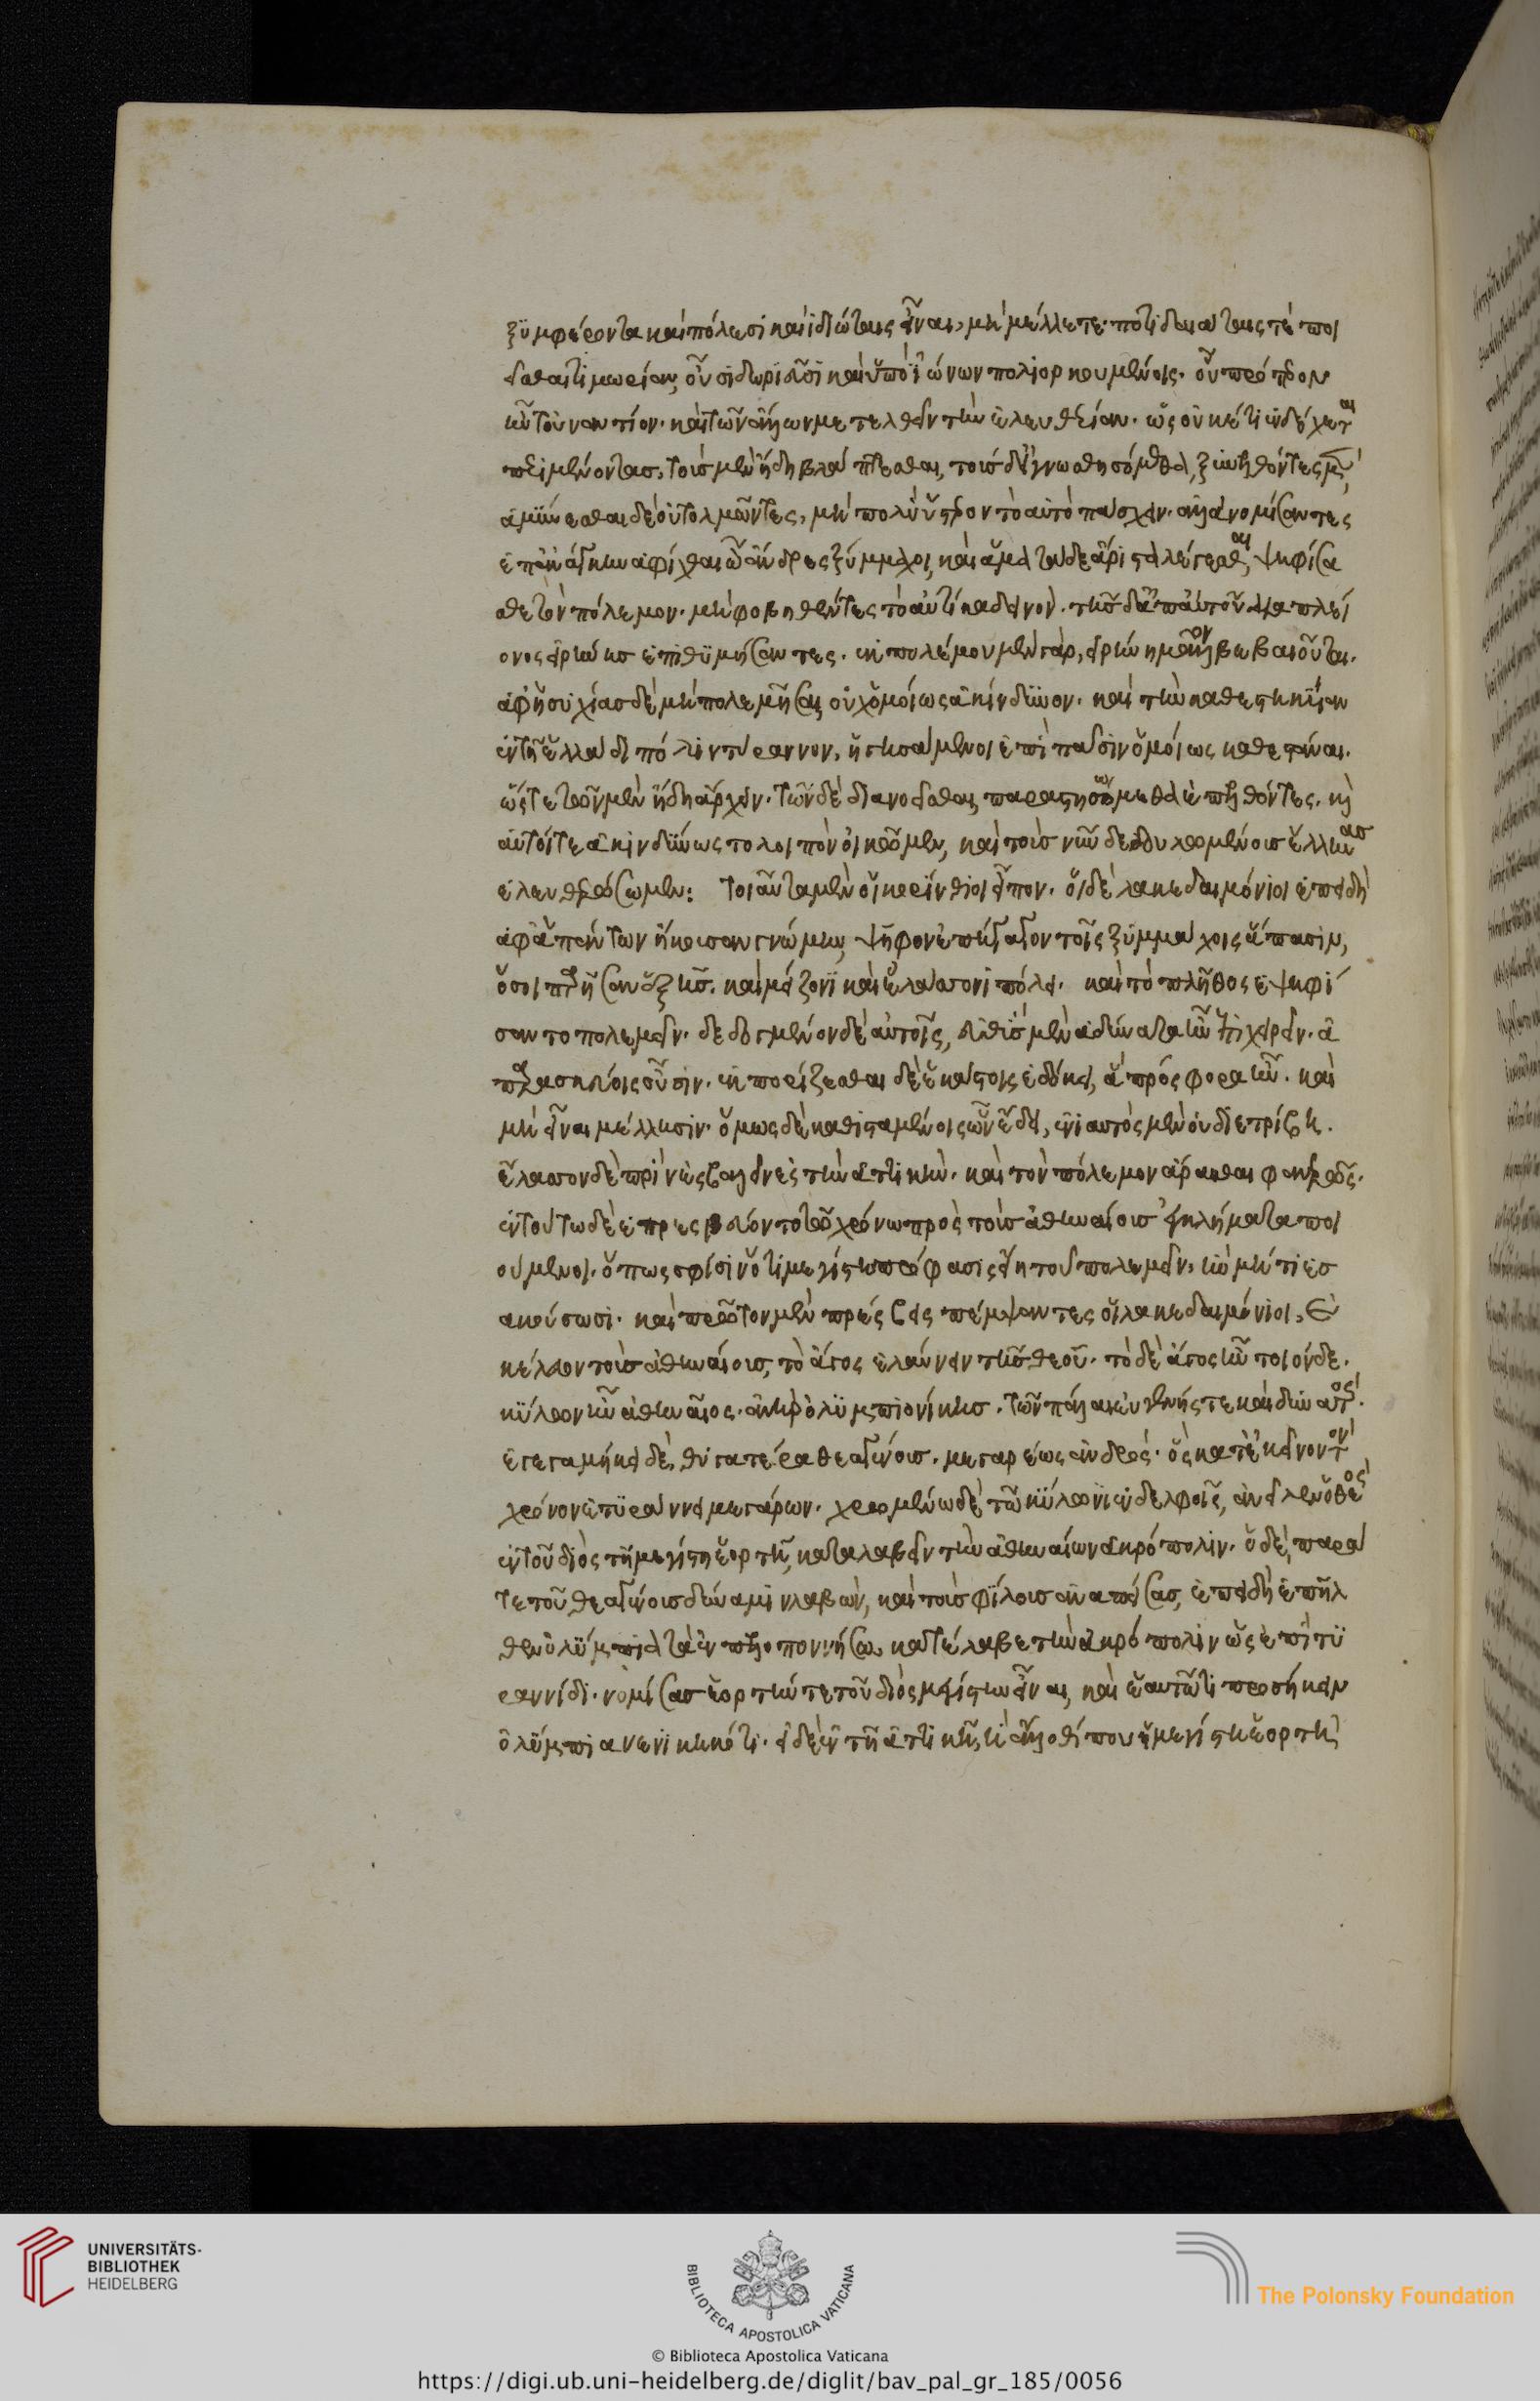 ξυμφέροντα καὶ πόλεσι καὶ ἰδιώταις εἶναι, μὴ μέλλετε ποτιδαιάταις τὲ ποι
εῖσθαι τιμωρίαν, οὖσι δωριεῦσι καὶ ὑπὸ ἰώνων πολιορκουμένοις. οὗ πρότερον
ἦν τοὐναντίον. καὶ τῶν ἄλλων μετελθεῖν τὴν ἐλευθερίαν. ὡς οὐκέτι ἐνδέχεται
περιμένοντας, τοὺς μὲν ἤδη βλάπτεσθαι, τοὺς δ' εἰ γνωσθησόμεθα, ξυνελθόντες μὲν
ἀμύνεσθαι δὲ οὐ τολμῶντες, μὴ πολὺ ὕστερον τὸ αὐτὸ πάσχειν. ἀλλὰ νομίσαντες
ἐπ' ἀνάγκην ἀφίχθαι ὦ ἄνδρες ξύμμαχοι, καὶ ἅμα τάδε ἄριστα λέγεσθαι, ψηφίσα
σθε τὸν πόλεμον. μὴ φοβηθέντες τὸ αὐτίκα δεινόν. τῆς δ' ἀπ' αὐτοῦ διὰ πλεί
ονος εἰρήνης ἐπιθυμήσαντες. ἐκ πολέμου μὲν γὰρ, εἰρήνη μᾶλλον βεβαιοῦται.
ἀφ' ἡσυχίας δὲ μὴ πολεμῆσαι, οὐχ ὁμοίως ἀκίνδυνον. καὶ τὴν καθεστηκυῖαν
ἐν τῇ ἑλλάδι πόλιν τύραννον, ἡγησάμενοι ἐπὶ πᾶσιν ὁμοίως καθεστάναι.
ὥστε τῶν μὲν ἤδη ἄρχειν. τῶν δὲ διανοεῖσθαι, παραστησώμεθα ἐπελθόντες. καὶ
αὐτοί τε ἀκινδύνως τὸ λοιπὸν οἰκῶμεν, καὶ τοὺς νῦν δεδουλωμένους ἕλληνας
ἐλευθερώσωμεν: τοιαῦτα μὲν οἱ κορίνθιοι εἶπον. οἱ δὲ λακεδαιμόνιοι ἐπειδὴ
ἀφ' ἁπάντων ἤκουσαν γνώμην, ψῆφον ἐπήγαγον τοῖς ξυμμάχοις ἅπασιν,
ὅσοι παρῆσαν ἑξῆς. καὶ μείζονι καὶ ἐλάσσονι πόλει. καὶ τὸ πλῆθος ἐψηφί
σαντο πολεμεῖν. δεδογμένον δὲ αὐτοῖς, εὐθὺς μὲν ἀδύνατα ἦν ἐπιχειρεῖν. ἀ
παρασκεύοις οὖσιν. ἐκπορίζεσθαι δὲ ἑκάστοις ἐδόκει, ἃ πρόσφορα ἦν. καὶ
μὴ εἶναι μέλλησιν. ὅμως δὲ καθισταμένοις ὧν ἔδει, ἐνιαυτὸς μὲν οὐ διετρίβη.
ἔλασσον δὲ πρὶν ἐσβαλεῖν ἐς τὴν ἀττικὴν. καὶ τὸν πόλεμον ἄρασθαι φανερῶς.
ἐν τούτω δὲ ἐπρεσβεύοντο τῷ χρόνω πρὸς τοὺς ἀθηναίους ἐγκλήματα ποι
ούμενοι. ὅπως σφίσιν ὅτι μεγίστη πρόφασις εἴη τοῦ πολεμεῖν, ἢν μή τι ἐσ
ακούσωσι. καὶ πρῶτον μὲν πρέσβεις πέμψαντες οἱ λακεδαιμόνιοι, ἐ
κέλευον τοὺς ἀθηναίους, τὸ ἄγος ἐλαύνειν τῆς θεοῦ. τὸ δὲ ἄγος ἦν τοιόνδε.
κύλων ἦν ἀθηναῖος. ἀνὴρ ὀλυμπιονίκης. τῶν πάλαι εὐγενής τε καὶ δυνατός.
ἐγεγαμήκει δὲ, θυγατέρα θεαγένους. μεγαρέως ἀνδρός. ὃς κατ' ἐκεῖνον τὸν
χρόνον ἐτυράννει μεγάρων. χρωμένω δὲ τῷ κύλωνι ἐν δελφοῖς, ἀνεῖλεν ὁ θεός
ἐν τοῦ διὸς τῇ μεγίστη ἑορτῇ, καταλαβεῖν τὴν ἀθηναίων ἀκρόπολιν. ὁ δὲ, παρά
τε τοῦ θεαγένους δύναμιν λαβὼν, καὶ τοὺς φίλους ἀναπείσας, ἐπειδὴ ἐπῆλ
θεν ὀλύμπια τὰ ἐν πελοποννήσω, κατέλαβε τὴν ἀκρόπολιν ὡς ἐπὶ τυ
ραννίδι. νομίσας ἑορτήν τε τοῦ διὸς μεγίστην εἶναι, καὶ ἑαυτῷ τι προσήκειν
ὀλύμπια νενικηκότι. εἰ δὲ ἐν τῇ ἀττικῇ, ἢ ἄλλοθί που ἡ μεγίστη ἑορτὴ
UNIVERSITÄTS-
BIBLIOTHEK
HEIDELBERG
BIBLIOTECA APOSTOLICA VATICANA
The Polonsky Foundation
© Biblioteca Apostolica Vaticana
https://digi.ub.uni-heidelberg.de/diglit/bav_pal_gr_185/0056